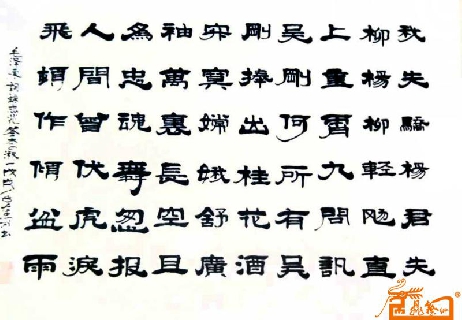 我失驕楊君失
柳楊柳輕颺直
上重霄九問訊
吴剛何所有吴
剛捧出桂花酒
寂寞嫦娥舒廣
袖萬裏長空且
為忠魂舞忽报
人間曾伏虎淚
飛頓作傾盆雨
毛澤東詞蝶戀花答李淑一